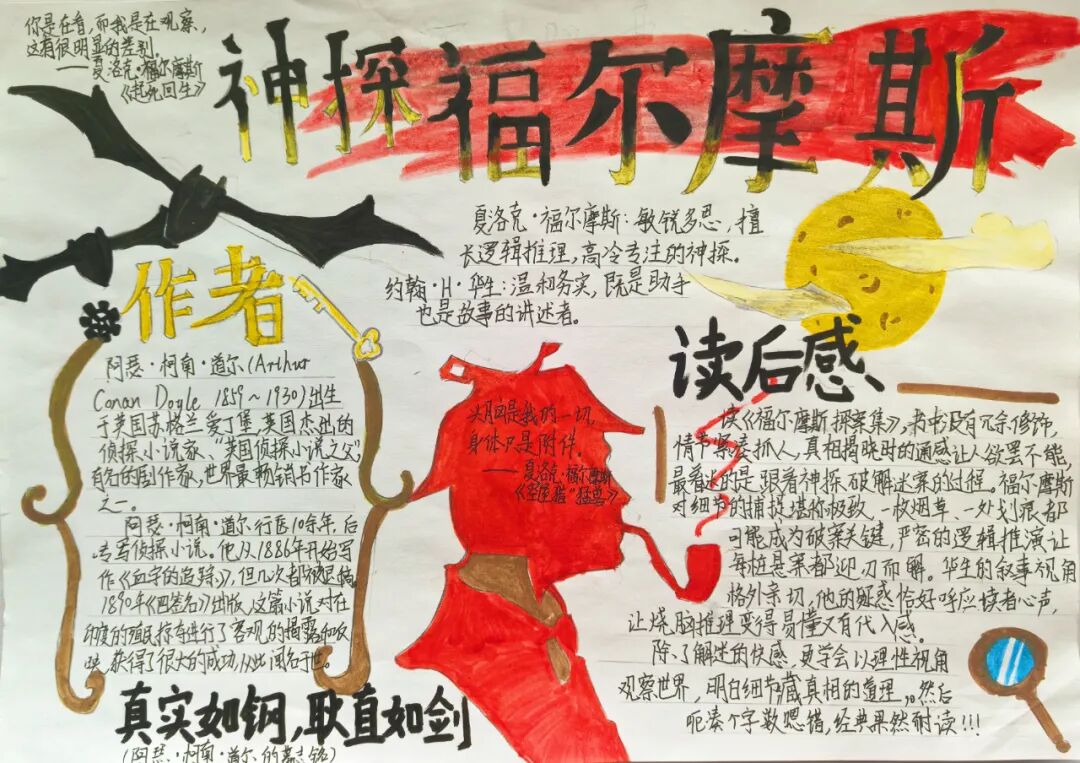 你是在看,而我是在观察,
这有很明显的差别。
——夏洛克·福尔摩斯
《起死回生》
神探福尔摩斯
夏洛克·福尔摩斯:敏锐多思,擅
长逻辑推理,高冷专注的神探。
约翰·H·华生:温和务实,既是助手
也是故事的讲述者。
作者
阿瑟·柯南·道尔(Arthur
Conan Doyle 1859~1930)出生
于英国苏格兰爱丁堡,英国杰出的
侦探小说家、“英国侦探小说之父”,
有名的剧作家,世界最畅销书作家
之一。
阿瑟·柯南·道尔行医10余年,后
专写侦探小说。他从1886年开始写
作《血字的追踪》,但几次都被退稿,
1890年《四签名》出版,这篇小说对在
印度的殖民掠夺进行了客观的揭露和反
获得了很大的成功,从此闻名于世。
真实如钢,耿直如剑
(阿瑟·柯南·道尔的墓志铭)
头脑是我的一切,
身体只是附件。
——夏洛克·福尔摩斯
读后感
读《福尔摩斯探案集》,书中没有冗余修饰,
情节紧凑抓人,真相揭晓时的通感让人欲罢不能,
最着迷的是跟着神探破解迷案的过程。福尔摩斯
对细节的捕捉堪称极致、一枚烟草、一处划痕都
可能成为破案关键,严密的逻辑推演让
每桩悬案都迎刃而解。华生的叙事视角
格外亲切,他的疑惑恰好呼应读者心声,
让烧脑推理变得易懂又有代入感。
除了解迷的快感,更学会以理性视角
观察世界,明白细节藏真相的道理。然后
呃凑个字数嘿借,经典果然耐读!!!